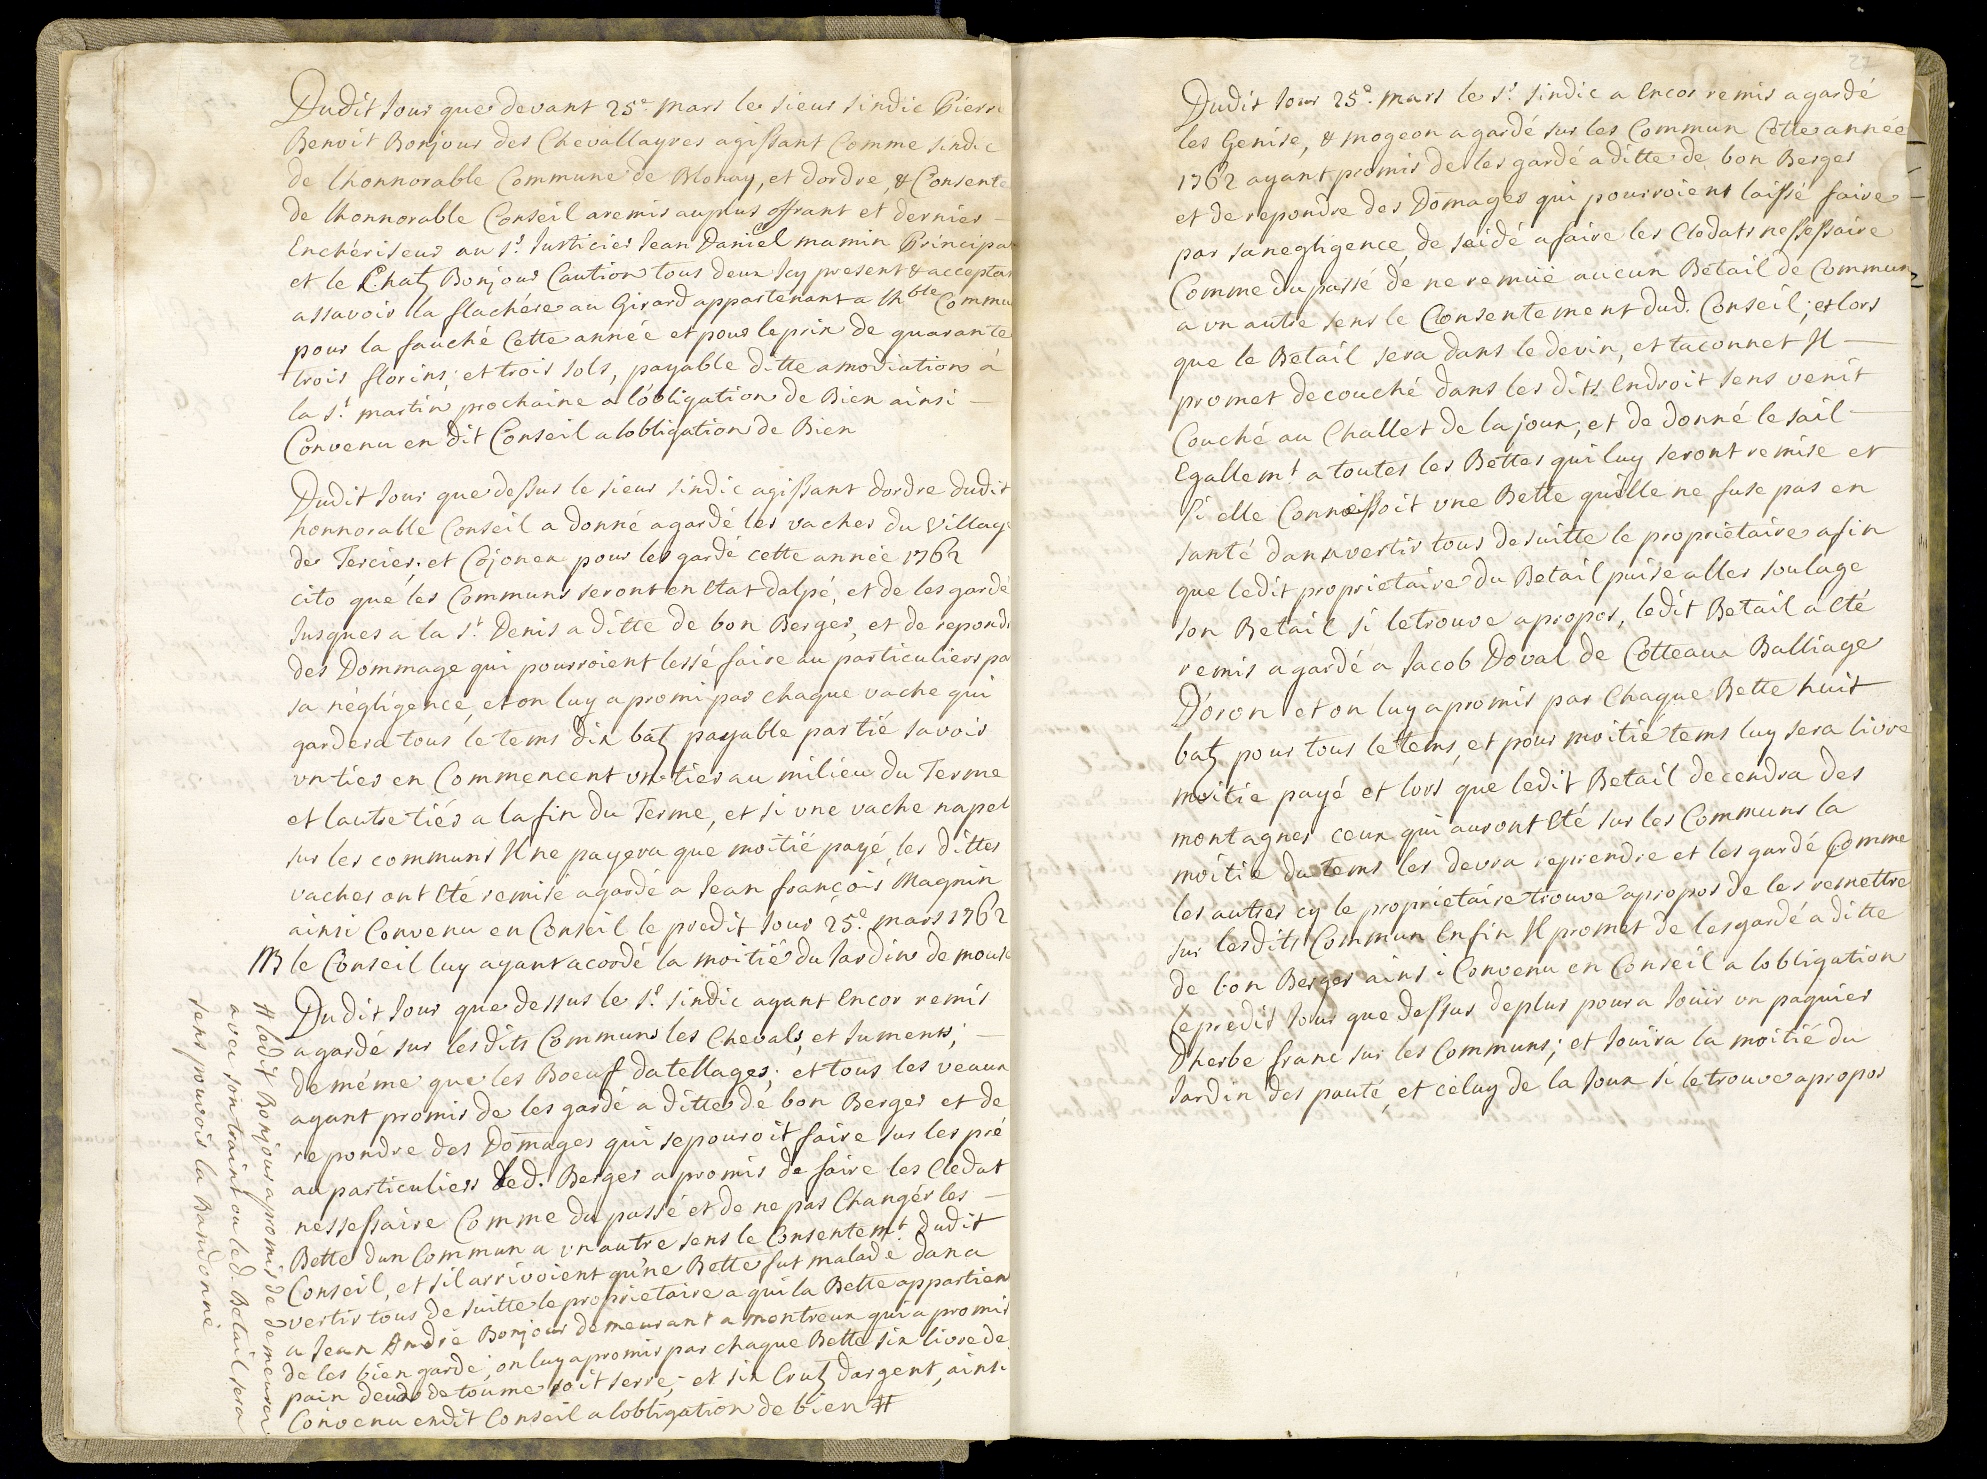 Dudit Jour que devant 25e. mars le sieur sindic Pierre
Benoit Bonjour des Chevallayres agissant Comme sindic
de lhonnorable Commune de Blonay, et dordre, & Consente
de lhonnorable Conseil a remis au plus offrant et dernier
Enchériseur au Sr. Justicier Jean Daniel mamin Principa
et le Chatz Bonjour Caution tous deux Icy present & accepta
assavoir la flachére au Girard appartenant a lhble Commu
pour la fauché Cette année et pour le prix de quarante
trois florins, et trois sols, payable ditte amodiation à
la St martin prochaine a lobligation de Bien ainsi
Convenu en dit Conseil a lobligation de Bien
Dudit Jour que dessus le sieur sindic agissant dordre dudit
honnorable Conseil a donné a gardé les vaches du village
de Tercier, et Cojonex pour les gardé cette année 1762
cito que les Communs seront en Etat dalpé, et de les gardé
Jusques a la St. Denis a ditte de bon Berger, et de repond
des Dommage qui pourroient lessé faire au particuliers pa
sa négligence, et on luy a promi par chaque vache qui
gardera tous le tems dix batz payable partie savoir
un tier en Commencent un tier au milieu du Terme
et lautre tiér a la fin du Terme, et si une vache napel
sur les communs Il ne payera que moitié payé, les dittes
vaches ont Eté remise a gardé a Jean françois Magnin
ainsi Convenu en Conseil le predit Jour 25e. mars 1762
NB le Conseil luy ayant acordé la moitié du Jardin de mouse
Dudit Jour que dessus le Sr. sindic ayant Encor remis
a gardé sur lesdits Communs les Chevals, et Juments,
de méme que les Boeuf datellages, et tous les veaux
ayant promis de les gardé a ditte de bon Berger et de
repondre des Domages qui se pouroit faire sur les pré
au particuliers Led. Berger a promis de faire les Cledat
nessessaire Comme du passé et de ne pas Changér les
Bette dun Commun a un autre sens le Consentemt. dudit
Conseil, et sil arrivoient qu'ne Bette fut malade dan a
vertir tous de suitte le propriétaire a qui la Bette appartien
a Jean André Bonjour demeurant a montreux qui a promis
de les bien gardé, on luy a promis par chaque Bette six livre de
pain deux de toume soit serré, et six Crutz dargent, ainsi
Convenu en dit Conseil a lobligation de bien #
# ledit Bonjour a promis de demeurer
avec son train ou led. Betail sera
sens pouvoir la Bandonné
Dudit Jour 25e. mars le Sr. sindic a Encor remis a gardé
les Genise, & mogeon a gardé sur les Commun Cette année
1762 ayant promis de les gardé a ditte de bon Berger
et de repondre des Domages qui pourroient laissé faire
par sa negligence, de seidé a faire les Cledats nessessaire
Comme du passé de ne remué aucun Bétail de Commun
a un autre sens le Consentement dud. Conseil; et lors
que le Betail sera dans le devin, et taconnet Il
promet de couché dans les dits Endroit sens venir
Couché au Challet de la joux, et de donné le sail
Egallemt a toutes les Bettes qui luy seront remise et
si elle Connoissoit une Bette quille ne fuse pas en
santé dan avertir tous de suitte le propriétaire afin
que ledit propriétaire du Betail puise aller soulage
son Betail si le trouve a propos, ledit Betail a Eté
remis a gardé a Jacob Doval de Cotteaux Balliage
D'oron et on luy a promis par Chaque Bette huit
batz pour tous le tems, et pour moitié tems luy sera livre
moitie payé et lors que ledit Betail decendra des
montagnes ceux qui auront Eté sur les Communs la
moitie du tems les devra reprendre et les gardé Comme
les autres cy le propriétaire trouve a propos de les remettre
sur lesdits Commun Enfin Il promet de les gardé a ditte
de bon Berger ainsi Convenu en Conseil a lobligation
le predit Jour que dessus de plus poura Jouir un paquier
Dherbe franc sur les Communs; et Jouira la moitié du
Jardin des pauté, et celuy de la Joux si le trouve a propos